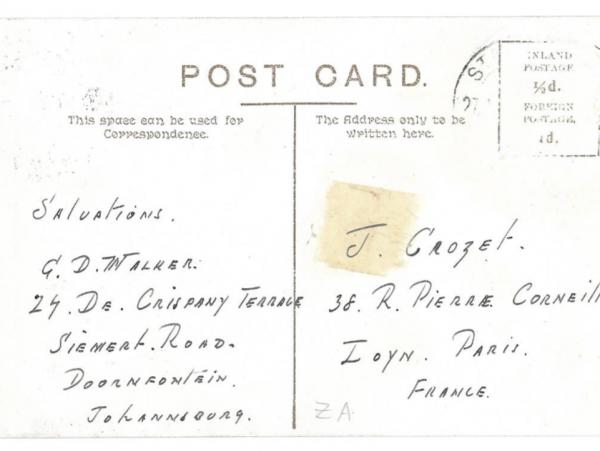 POST CARD.
This space can be used for
Correspondence.
The Address only to be
written here.
INLAND
POSTAGE
½d.
FOREIGN
POSTAGE,
1d.
ST
27
Saluations.
G. D. Walker.
24. De. Crispany Terrace
Siemert. Road.
Doornfontein.
Johannsburg.
J. Crozet.
38. R. Pierre Corneill
Ioyn. Paris.
France.
ZA